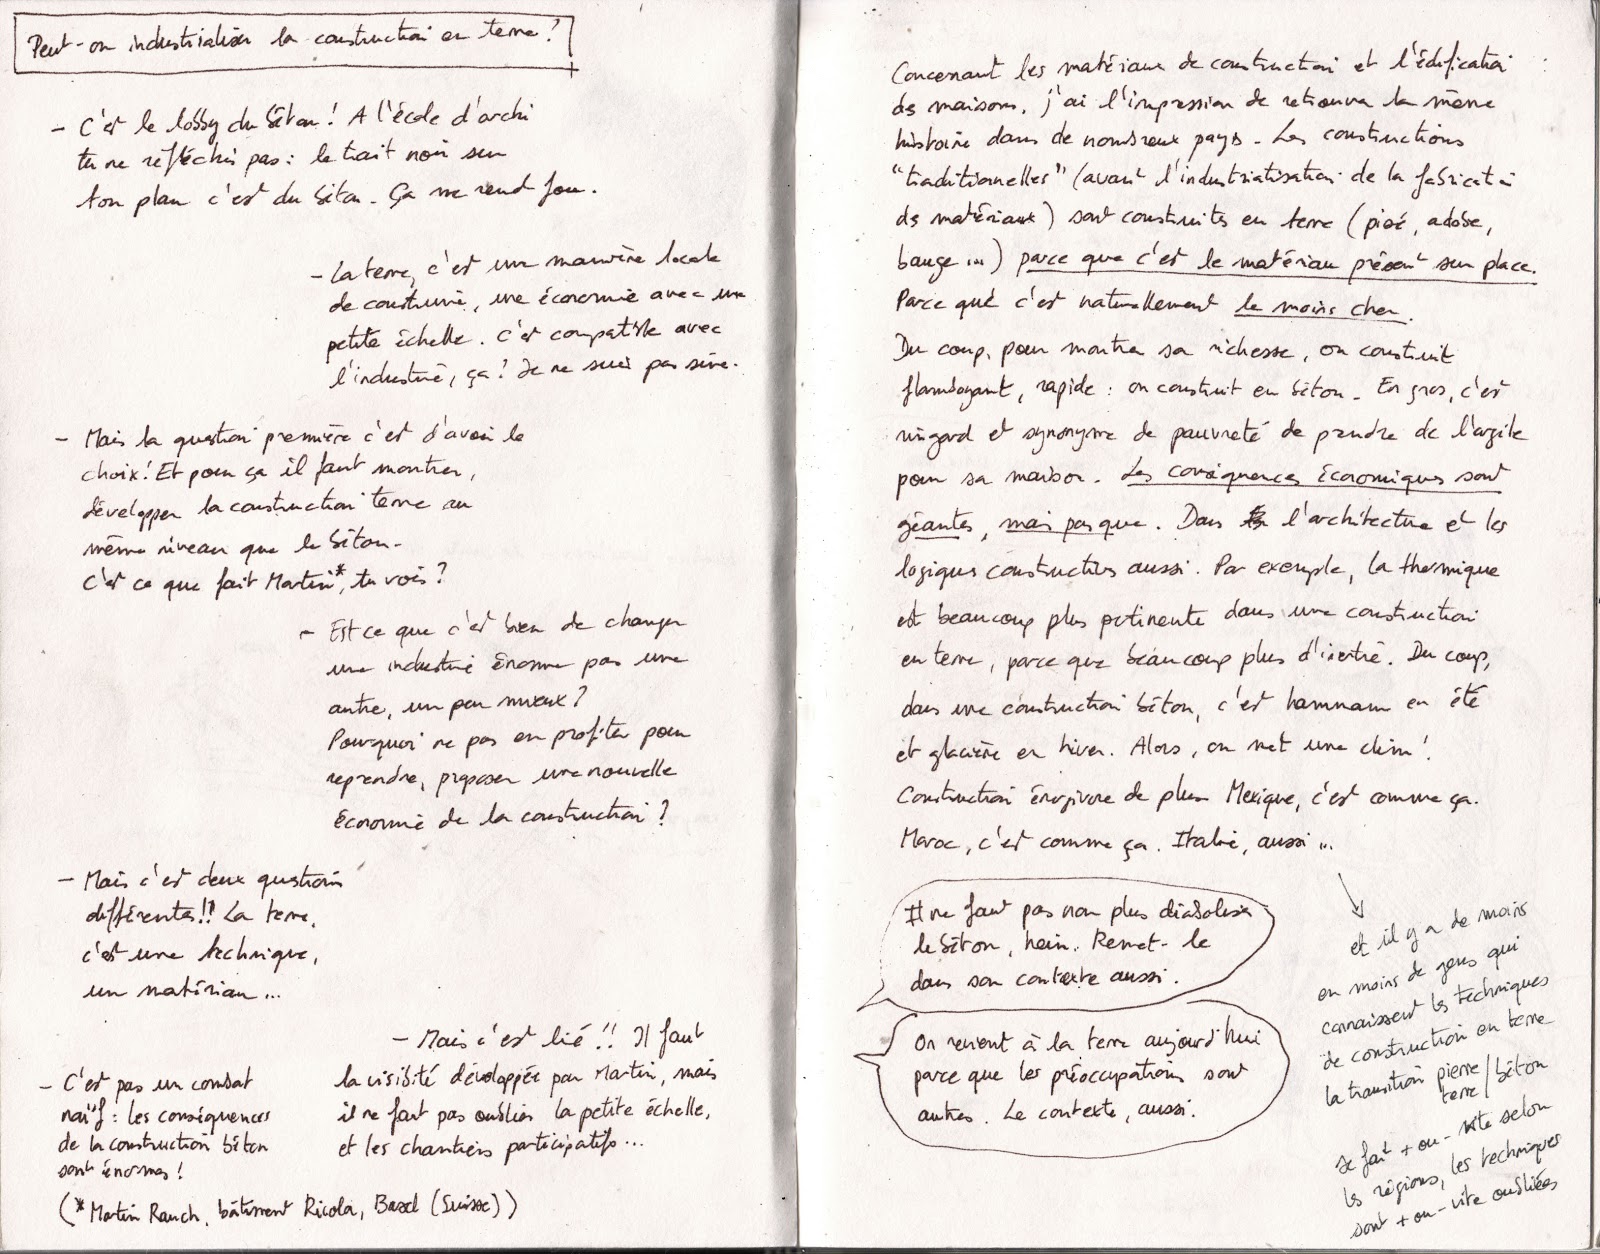 Peut-on industrialiser la construction en terre?
- C'est le lobby du béton! A l'école d'archi
tu ne réfléchis pas: le trait noir sur
ton plan c'est du béton. Ça me rend fou.
- La terre, c'est une manière locale
de construire, une économie avec une
petite échelle. C'est compatible avec
l'industrie, ça? Je ne suis pas sûre.
- Mais la question première c'est d'avoir le
choix! Et pour ça il faut montrer,
développer la construction terre au
même niveau que le béton.
C'est ce que fait Martin*, tu vois?
- Est ce que c'est bien de changer
une industrie énorme pas une
autre, un peu mieux?
Pourquoi ne pas en profiter pour
reprendre, proposer une nouvelle
économie de la construction?
- Mais c'est deux questions
différentes!! La terre,
c'est une technique,
un matériau...
- Mais c'est lié!! Il faut
la visibilité développée par Martin, mais
il ne faut pas oublier la petite échelle,
et les chantiers participatifs...
- C'est pas un combat
naïf: les conséquences
de la construction béton
sont énormes!
(* Martin Rauch, bâtiment Ricola, Basel (Suisse))
Concernant les matériaux de construction et l'édification
des maisons, j'ai l'impression de retrouver la même
histoire dans de nombreux pays. Les constructions
"traditionnelles" (avant l'industrialisation de la fabrication
des matériaux) sont construites en terre (pisé, adobe,
bauge...) parce que c'est le matériau présent sur place.
Parce que c'est naturellement le moins cher.
Du coup, pour montrer sa richesse, on construit
flamboyant, rapide: on construit en béton. En gros, c'est
ringard et synonyme de pauvreté de prendre de l'argile
pour sa maison. Les conséquences économiques sont
géantes, mais pas que. Dans l'architecture et les
logiques constructives aussi. Par exemple, la thermique
est beaucoup plus pertinente dans une construction
en terre, parce que beaucoup plus d'inertie. Du coup,
dans une construction béton, c'est hammam en été
et glacière en hiver. Alors, on met une clim!
Construction énergivore de plus. Mexique, c'est comme ça.
Maroc, c'est comme ça. Italie, aussi...
Il ne faut pas non plus diaboliser
le béton, hein. Remet-le
dans son contexte aussi.
On revient à la terre aujourd'hui
parce que les préoccupations sont
autres. Le contexte, aussi.
et il y a de moins
en moins de gens qui
connaissent les techniques
de construction en terre
la transition pierre/béton
terre
se fait + ou - vite selon
les régions, les techniques
sont + ou - vite oubliées